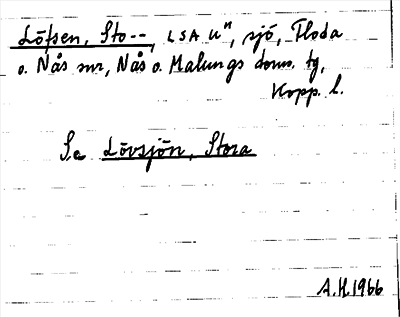 Löfsen, Sto--, LSA Uⁿ, sjö, Floda
o. Nås snr, Nås o. Malungs doms. tg,
Kopp. l.
Se Lövsjön, Stora
A.H. 1966